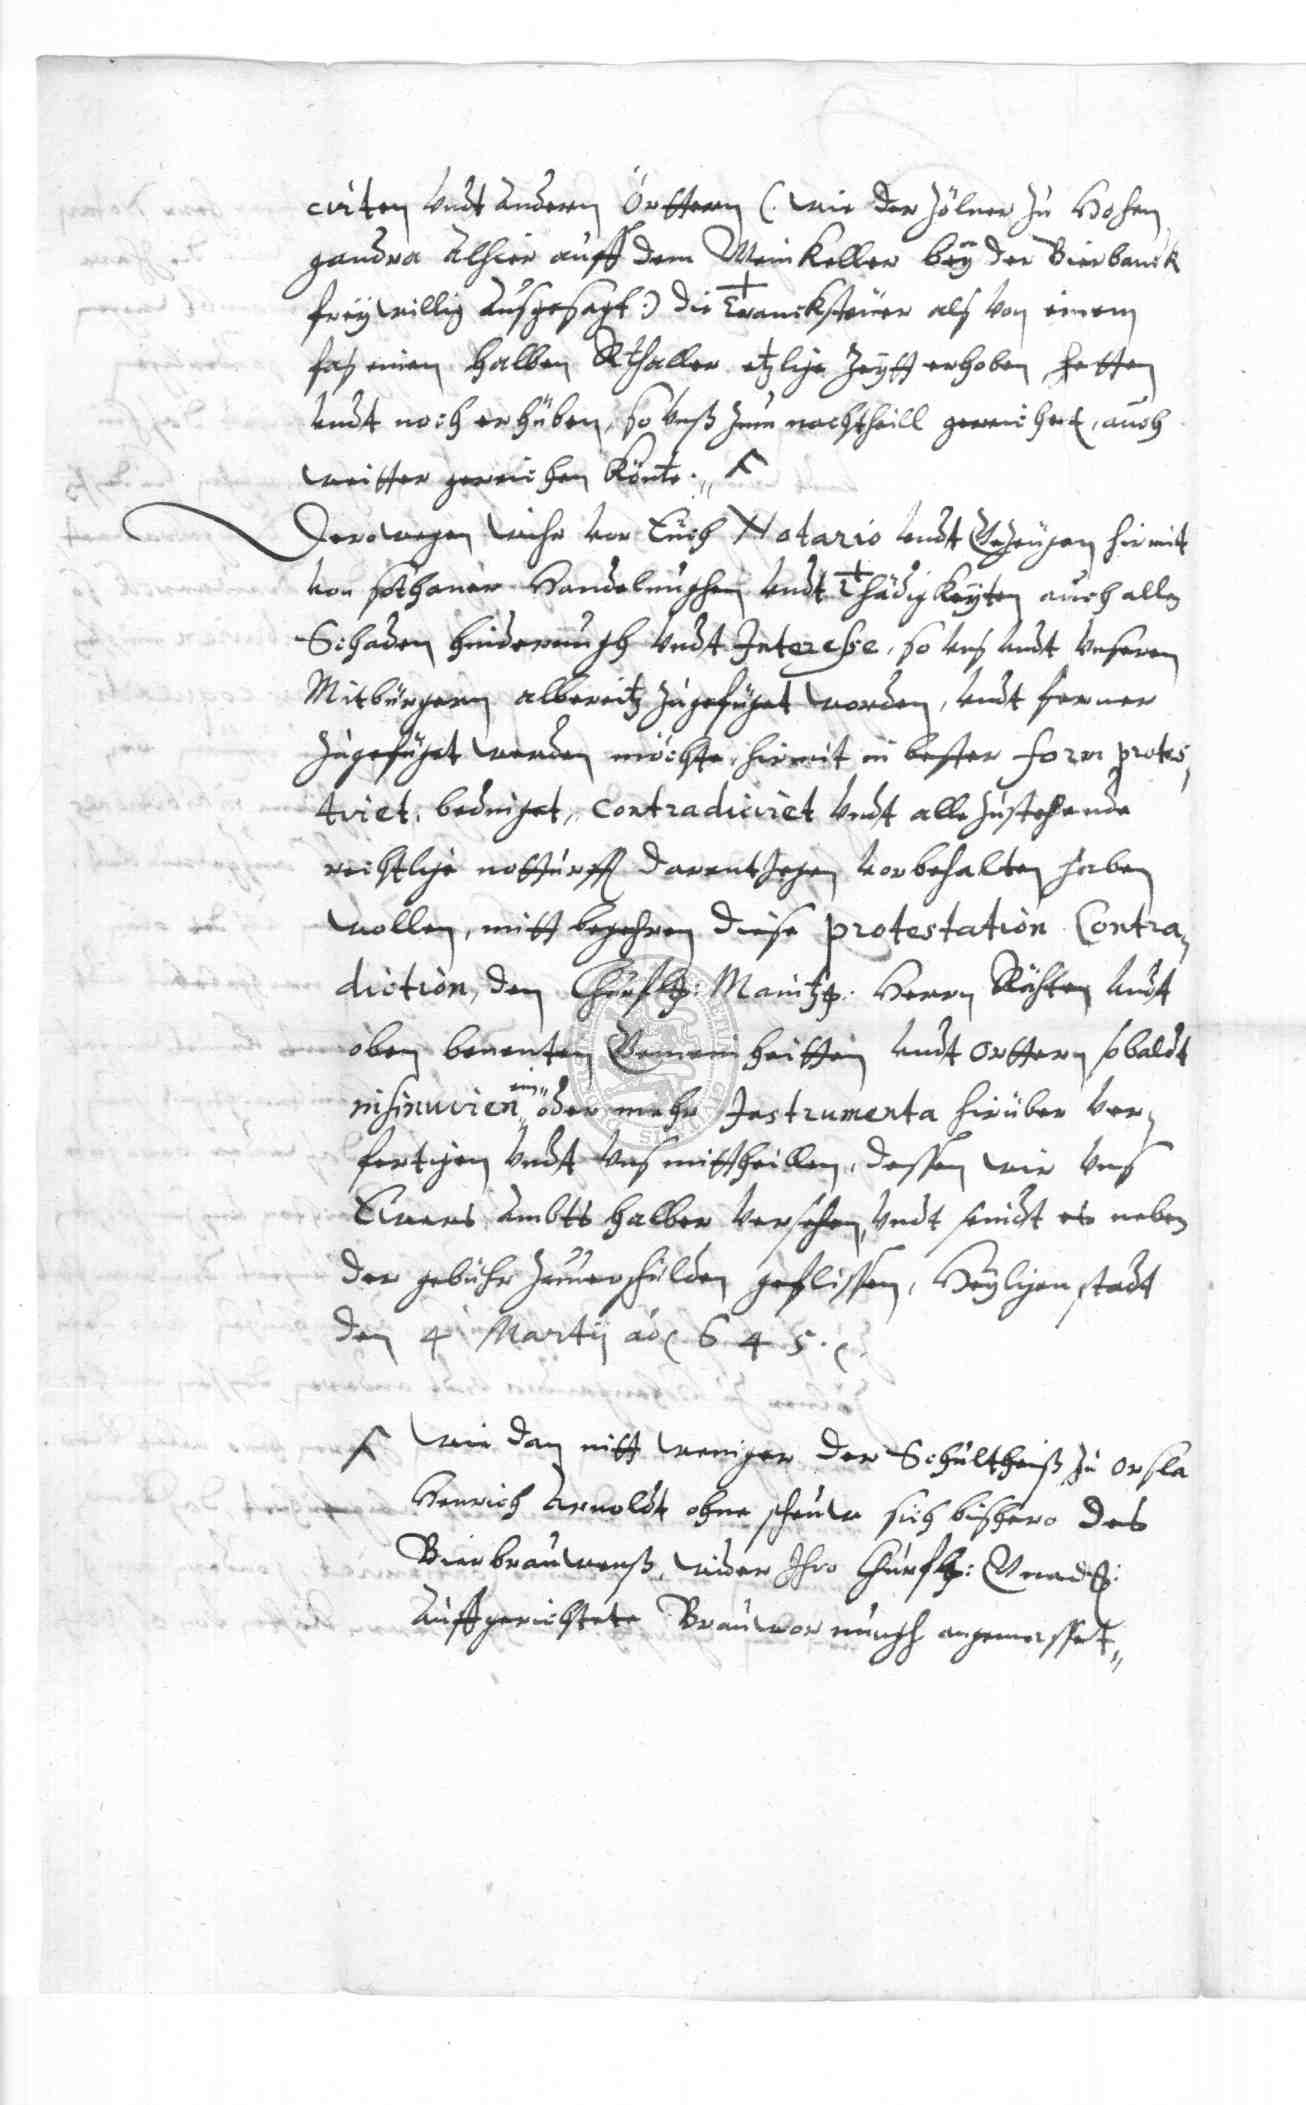 cirten undt andern Örttern (: wie der Zölner zu Hohen
gandra alhier auff dem Weinkeller beÿ der Bierbanck
freÿwillig ausgesagt :) die Tranckstewer als von einem
fas einen halben Rthaller etzlige Zeÿtt erhoben hetten
undt noch erhüben, so unß zum nachtheill gereichet, auch
weitter gereichen könte.
Derowegen wihr vor Euch Notario undt Gezeugen hirmit
von sothaner Handelunghen undt Thädigkeÿten auch allen
Schaden hinderungh undt Interesse, so uns undt unseren
Mitbürgern albereitz zugefüget worden, undt ferner
zugefüget werden möchte, hirmit in bester form protes,
tiret, bedinget, contradiciret undt alle zustehende
rechtlige notturfft darentjegen vorbehalten haben
wollen, mitt begehren diese protestation Contra,
diction, den Churfl: Maintz: Herrn Rähten undt
oben benenten Gemeinheitten undt Orttern sobaldt
insinuiren ein oder mehr Instrumenta hirüber ver,
fertigen undt uns mittheillen, dessen wir uns
Eweres Ambts halber versehen, undt seindt es neben
der gebühr zuverschulden geflissen, Heÿligenstadt
den 4 Martÿ ao 645.
wie dan nitt weniger der Schultheiß zu Orsla
Henrich Arnoldt ohne schew sich bishero des
Bierbrauwenß wider Ihro Churfl: Gnad:
auffgerichtete Brauwornungh angemasset